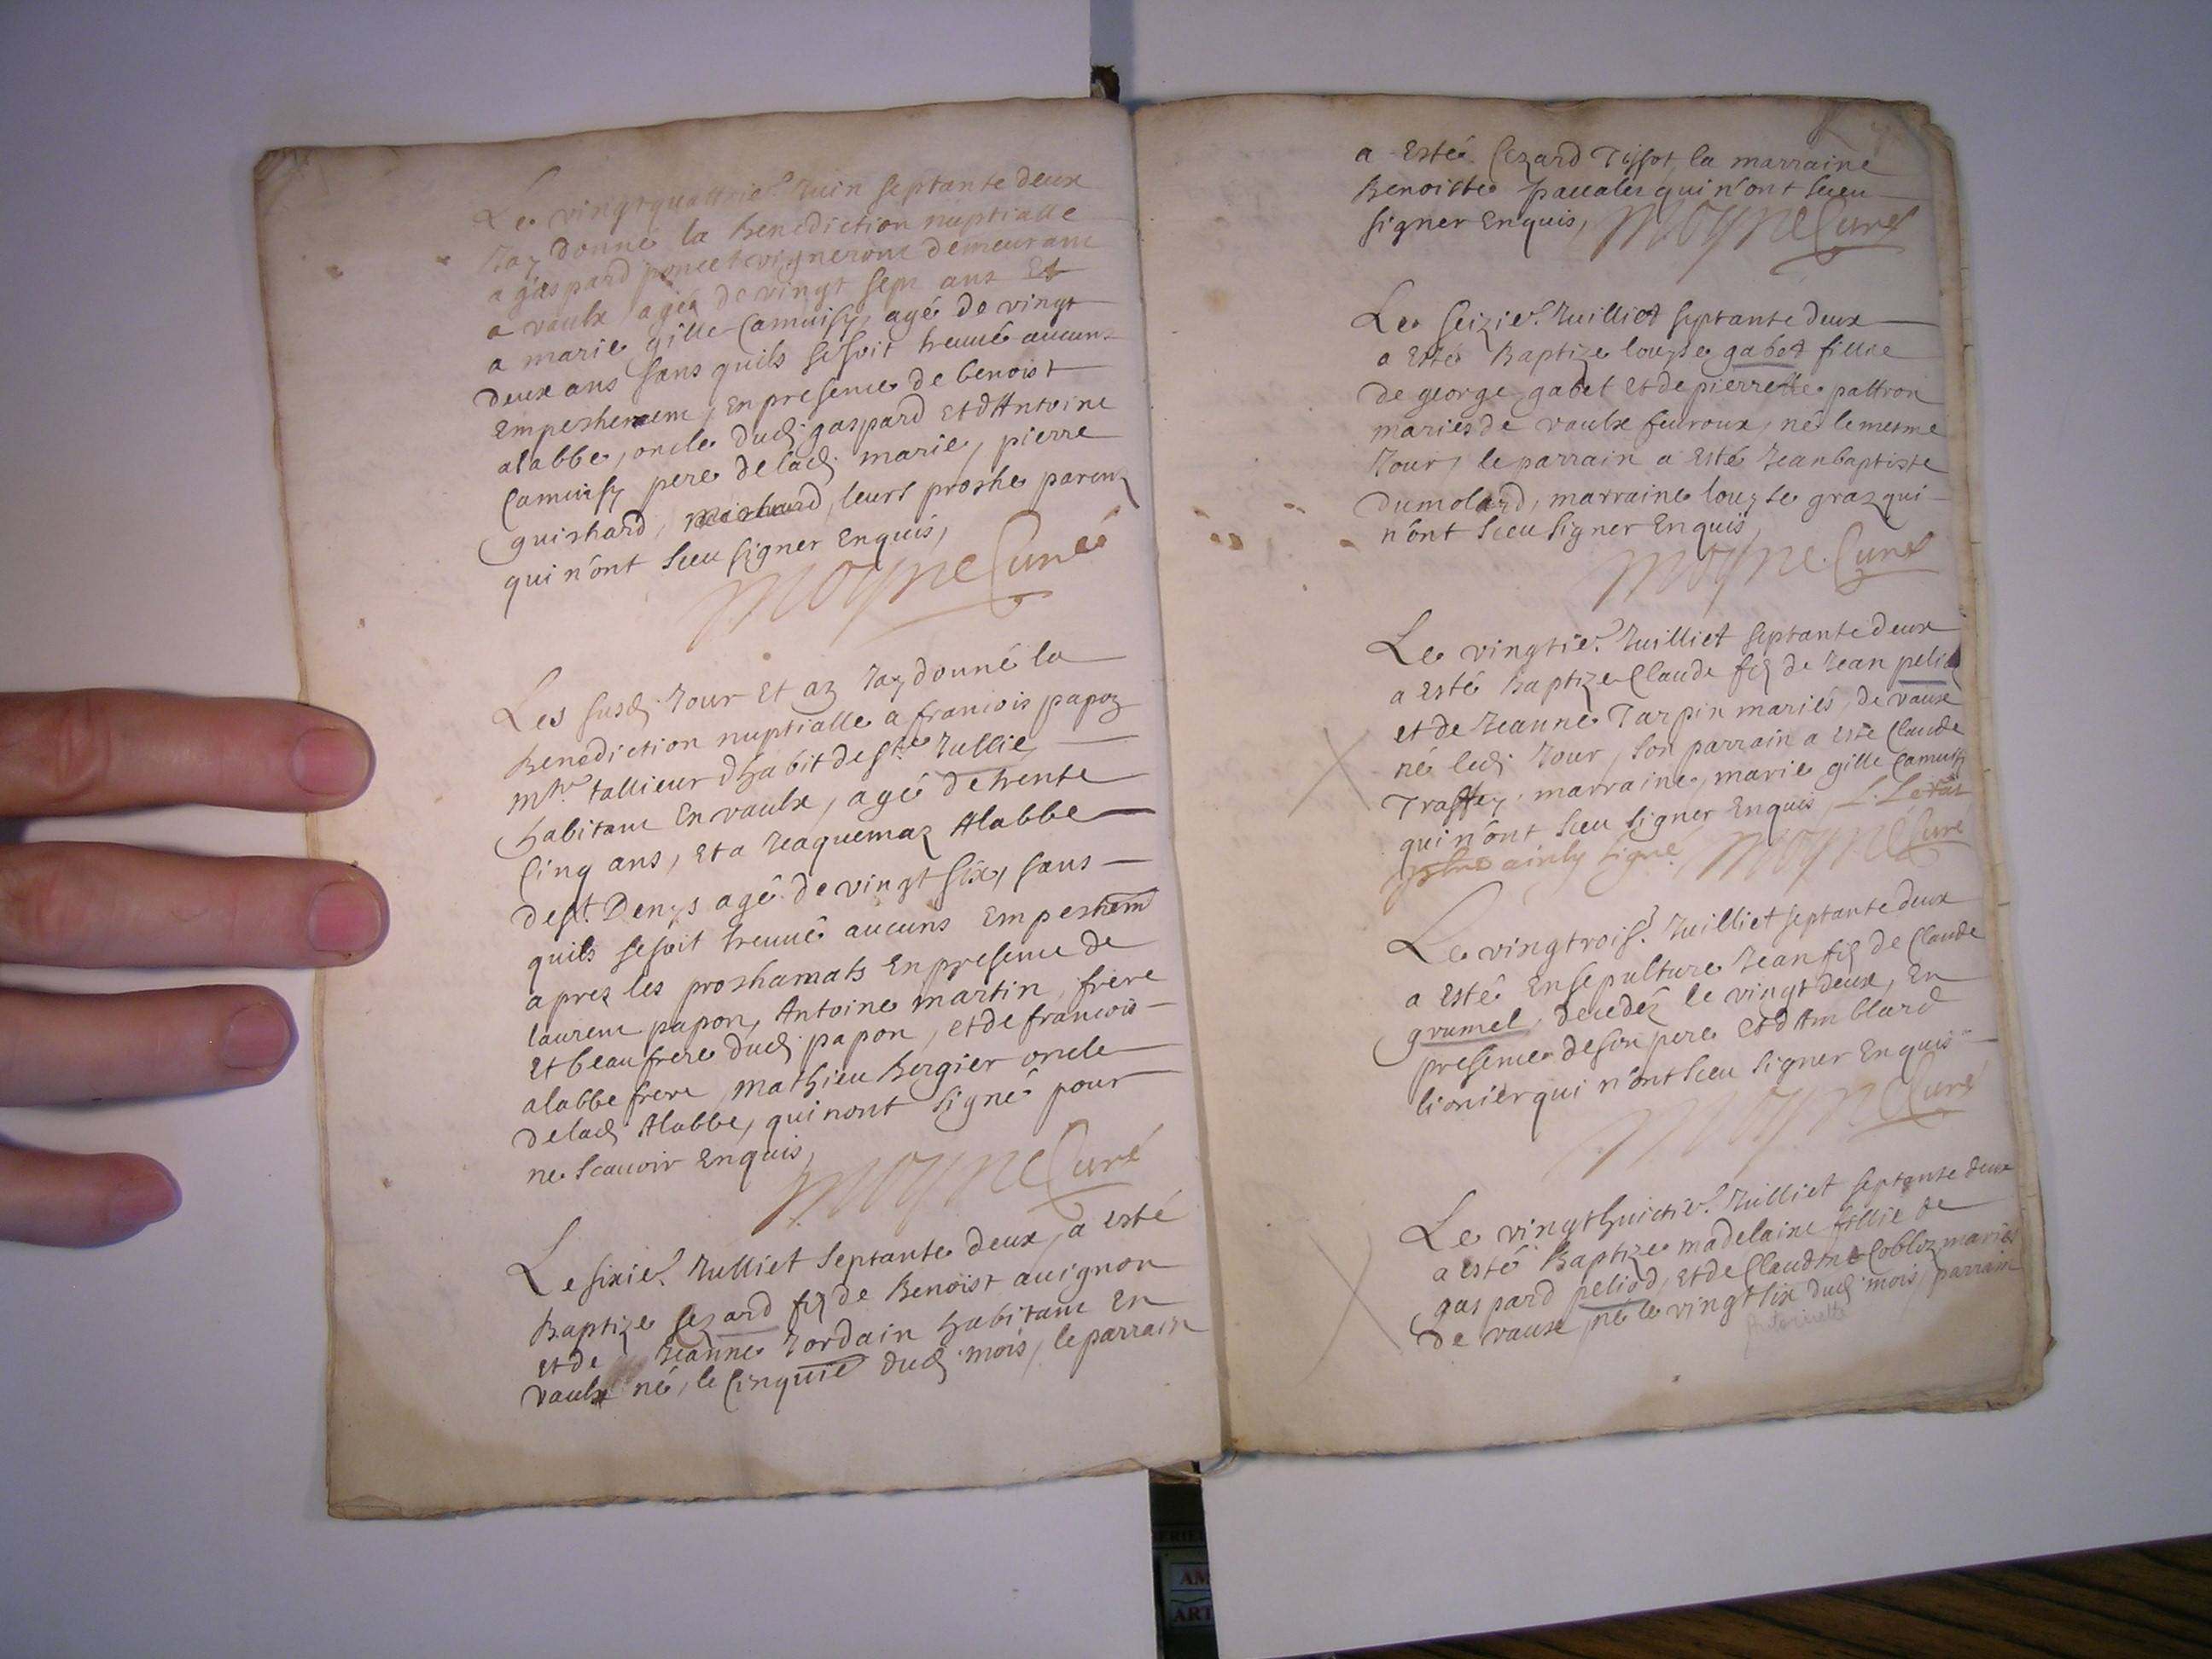 Le vingtquattrie.e Juin septante deux
Jay donné la benediction nuptialle
a gaspard poncet vigneront demeurant
a vaulx agéé de vingt sept ans Et
a marie gille Camuisy, agé de vingt
deux ans sans quils se soit treuué aucuns
Empeshement, En presence de benoist
alabbe, oncle dud. gaspard et d'Antoine
Camuisy pere de lad. marie, pierre
guishard, leurs proshe parenz
qui n'ont sceu signer Enquis,
Moyne Curé
Les susd. Jour et az Jay donné la
Benediction nuptialle a francois papoz
mtre tallieur d'habit de ste Jullie,
habitant En vaulx, agé de trente
Cinq ans, et a Jaquemaz Alabbe
de st. Denys agé de vingt six, sans
quils se soit treuué aucuns Empeshem
aprez les proshamats En presence de
laurent papon, Antoine martin, frere
Et beaufrere dud. papon, et de francois
alabbe frere, mathieu Bergier oncle
de lad. Alabbe, qui n'ont signé pour
ne scauoir Enquis,
Moyne Curé
Le sixie. Julliet septante deux, a esté
Baptize sezard fiz de Benoist auignon
et de Jeanne Jordain habitant En
vaulx né, le Cinquie dud. mois, le parrain
a Esté Cezard Tissot la marraine
Benoiste pauales qui n'ont sceu
signer Enquis, Moyne Curé
Le seizie. Juilliet septante deux
a esté Baptize louyse gabet fillie
de george gabet et de pierrette pattron
mariés de vaulx feuroux, né le mesme
Jour, le parrain a esté Jean baptiste
dumolard, marraine louyse graz qui
n'ont sceu signer Enquis
Moyne Curé
Le vingtie. Juilliet septante deux
a esté Baptize Claude fiz de Jean pelio
et de Jeanne Tarpin mariés, de vaux
né led. Jour, son parrain a esté Claude
Traffey. marraine, marie gille Camuisy
qui n'ont sceu signer Enquis,
ainsy signé, Moyne Curé
Le vingtrois. Juilliet septante deux
a esté Ensepulture Jean fiz de Claude
grumel, decedéz le vingt deux, En
presence de son pere et d'Amblard
lionier qui n'ont sceu signer Enquis
Moyne Curé
Le vingthuictie. Juilliet septante deux
a esté Baptize madelaine fillie de
gaspard peliod, et de Claudine Cobloz mariés
de vaux né le vingt six dud. mois, parrain